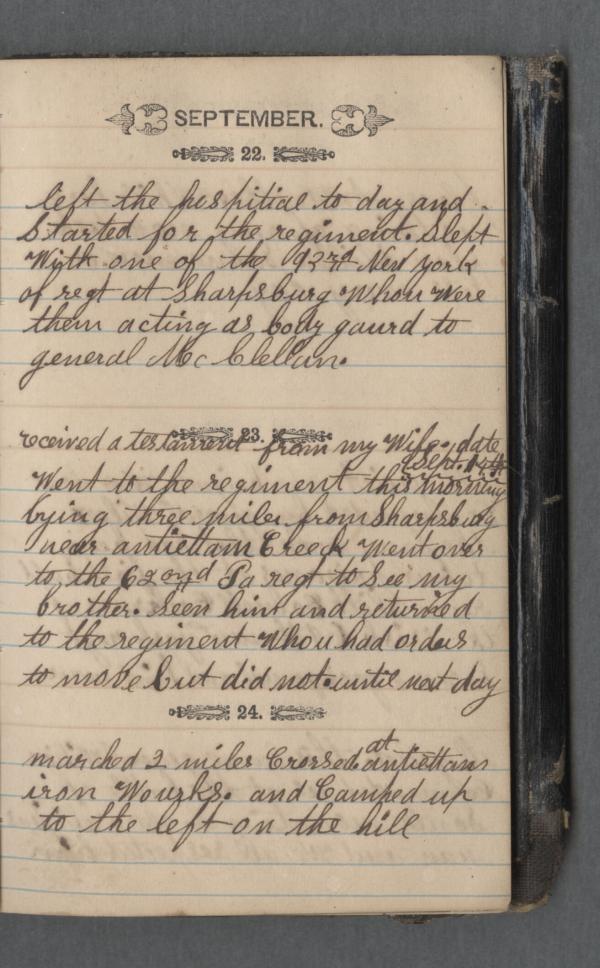 SEPTEMBER.
22.
left the hospitial to day and
Started for the regiment. Slept
With one of the 93rd New york
of regt at Sharpsburg Whou Were
them acting as body gaurd to
general Mc Clellan.
23.
received a testament from my Wife. date
Sept. 14th
Went to the regiment this morning
lying three miles from Sharpsburg
near antiettam Creek Went over
to the 62ond Pa regt to See my
brother. Seen him and returned
to the regiment Whou had orders
to move but did not until next day
24.
at
marched 2 miles Crossed antiettam
iron Wourks. and Camped up
to the left on the hill